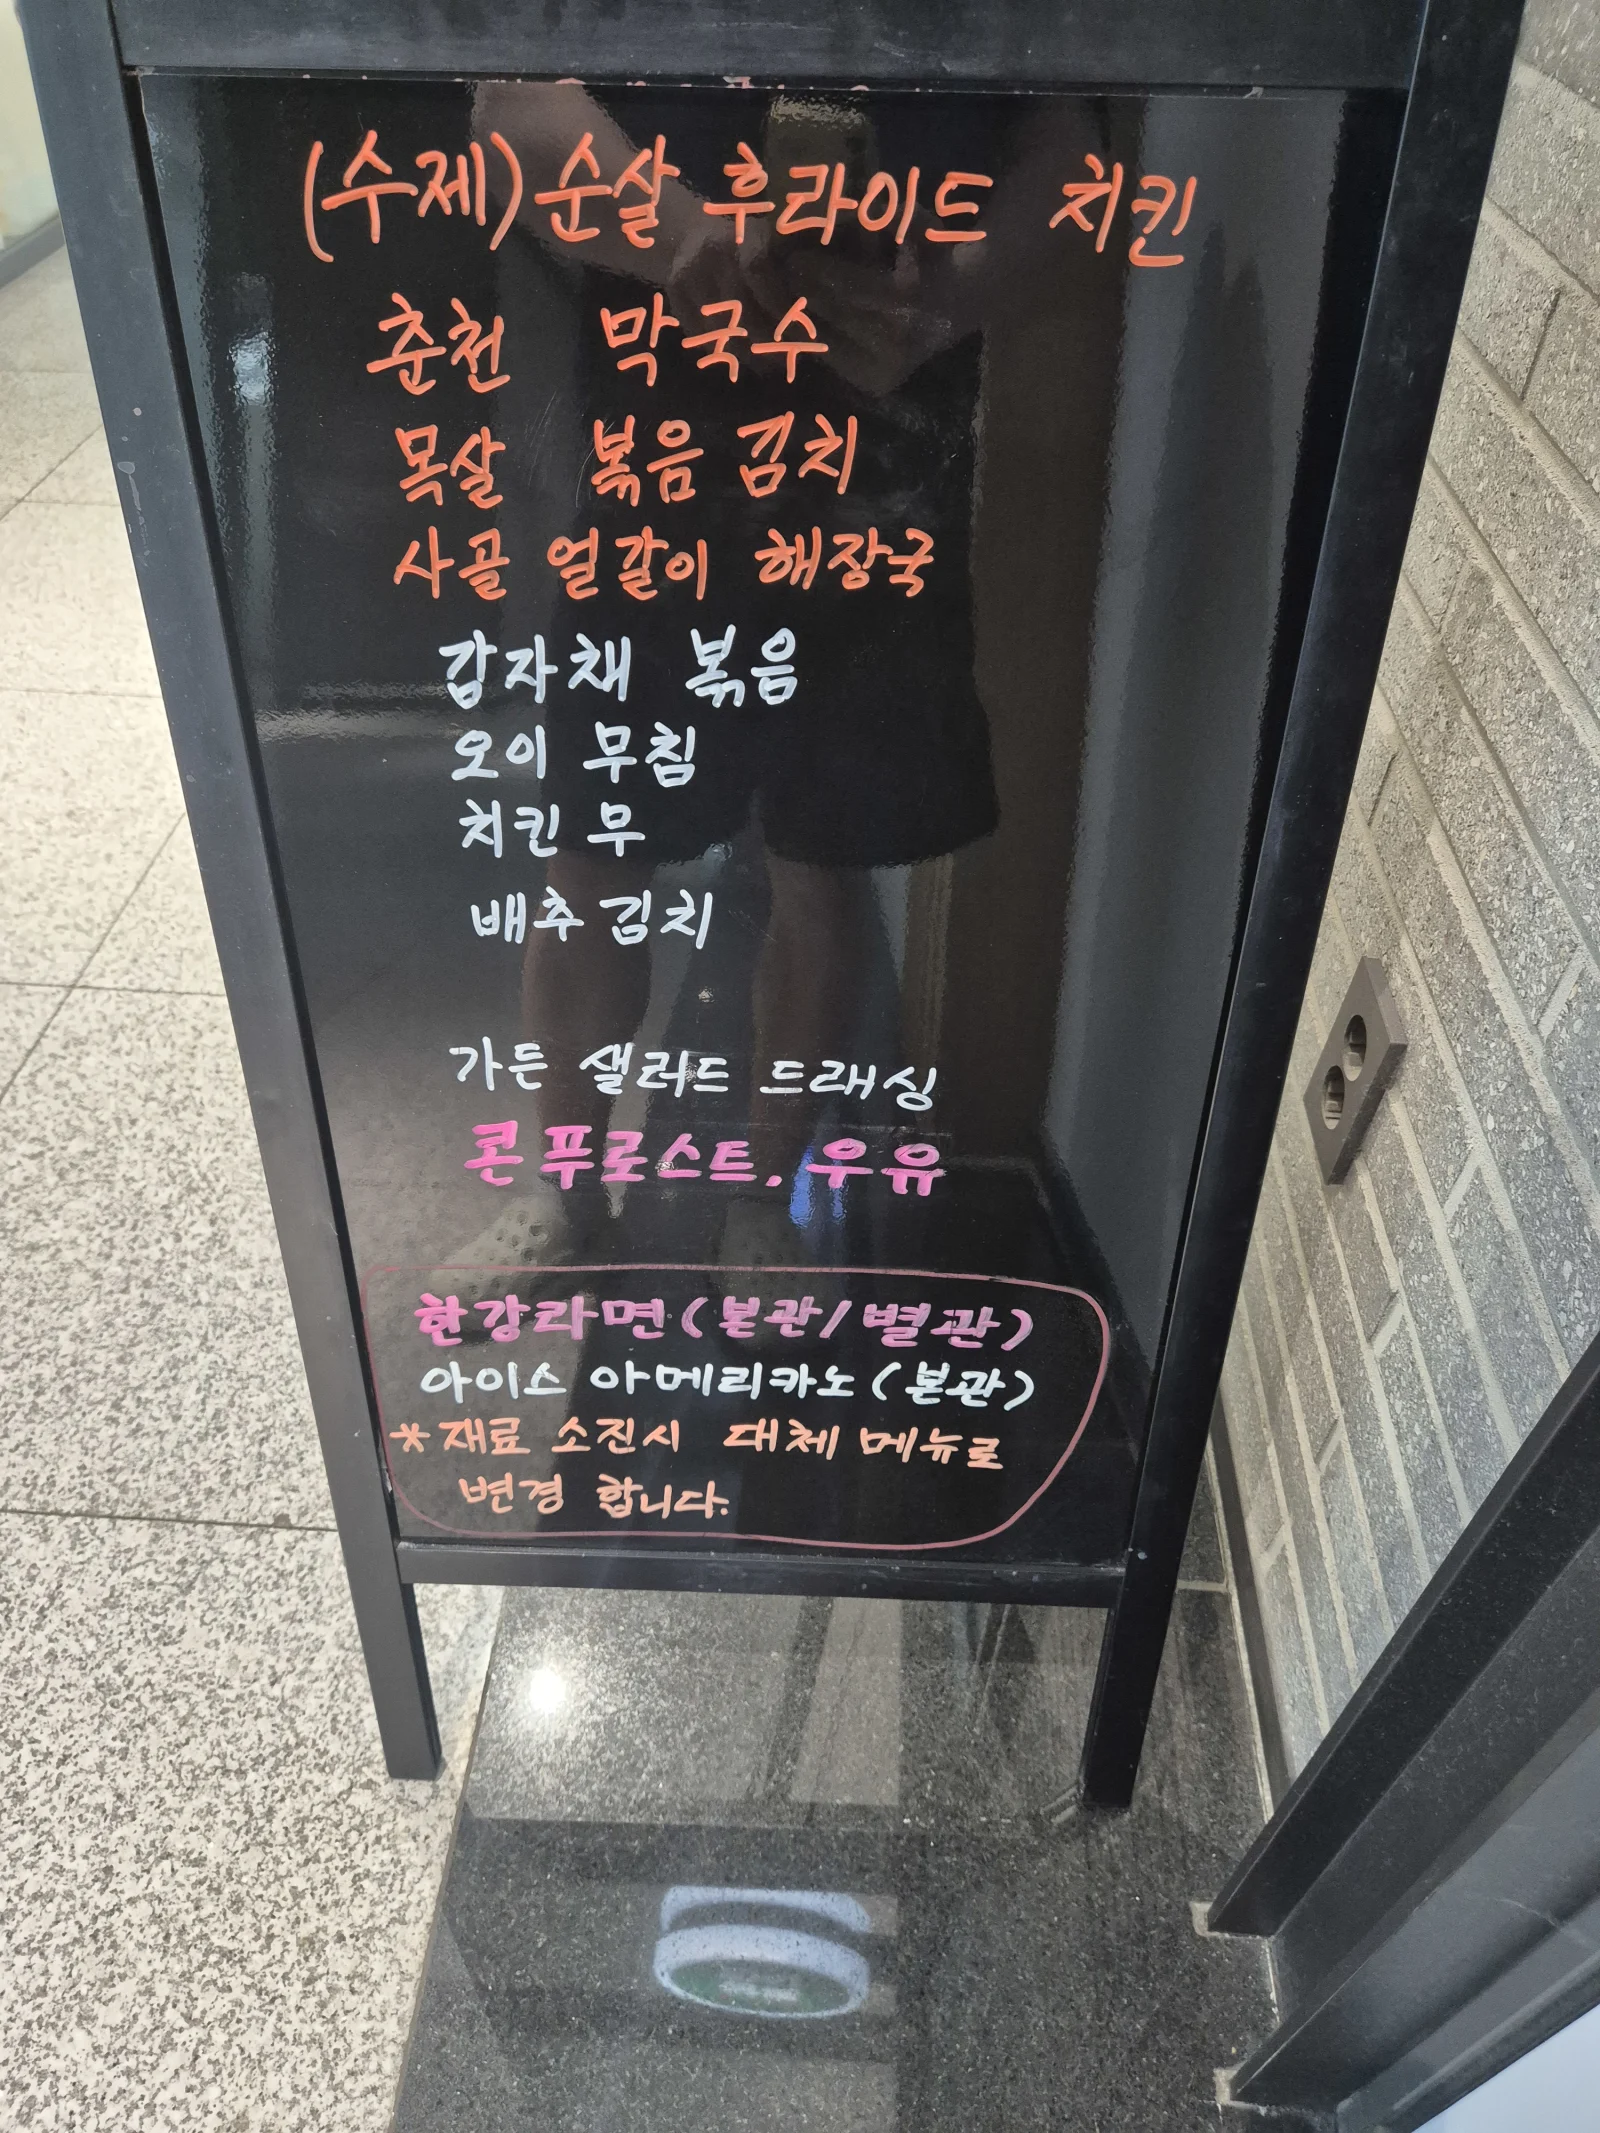 (수제) 순살 후라이드 치킨
춘천 막국수
목살 볶음 김치
사골 얼갈이 해장국
감자채 볶음
오이 무침
치킨 무
배추 김치
가든 샐러드 드래싱
콘푸로스트. 우유
한강라면 (본관/별관)
아이스 아메리카노 (본관)
*재료 소진시 대체 메뉴로
변경 합니다.